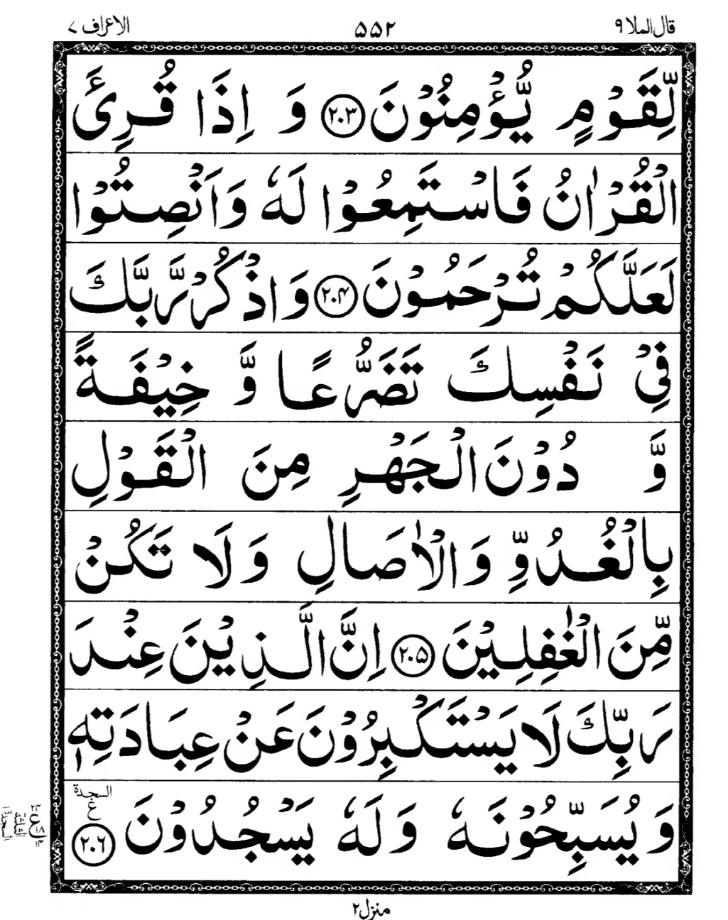 قال الملا ۹ ۵۵۲ الاعراف ۷
لِّقَوْمٍ يُّؤْمِنُوْنَ ﴿۲۰۳﴾ وَ اِذَا قُرِئَ
الْقُرْاٰنُ فَاسْتَمِعُوْا لَهٗ وَاَنْصِتُوْا
لَعَلَّكُمْ تُرْحَمُوْنَ ﴿۲۰۴﴾ وَاذْكُرْ رَّبَّكَ
فِيْ نَفْسِكَ تَضَرُّعًا وَّ خِيْفَةً
وَّ دُوْنَ الْجَهْرِ مِنَ الْقَوْلِ
بِالْغُدُوِّ وَالْاٰصَالِ وَلَا تَكُنْ
مِّنَ الْغٰفِلِيْنَ ﴿۲۰۵﴾ اِنَّ الَّذِيْنَ عِنْدَ
رَبِّكَ لَا يَسْتَكْبِرُوْنَ عَنْ عِبَادَتِهٖ
السجدة
وَيُسَبِّحُوْنَهٗ وَلَهٗ يَسْجُدُوْنَ ﴿۲۰۶﴾
منزل ۲